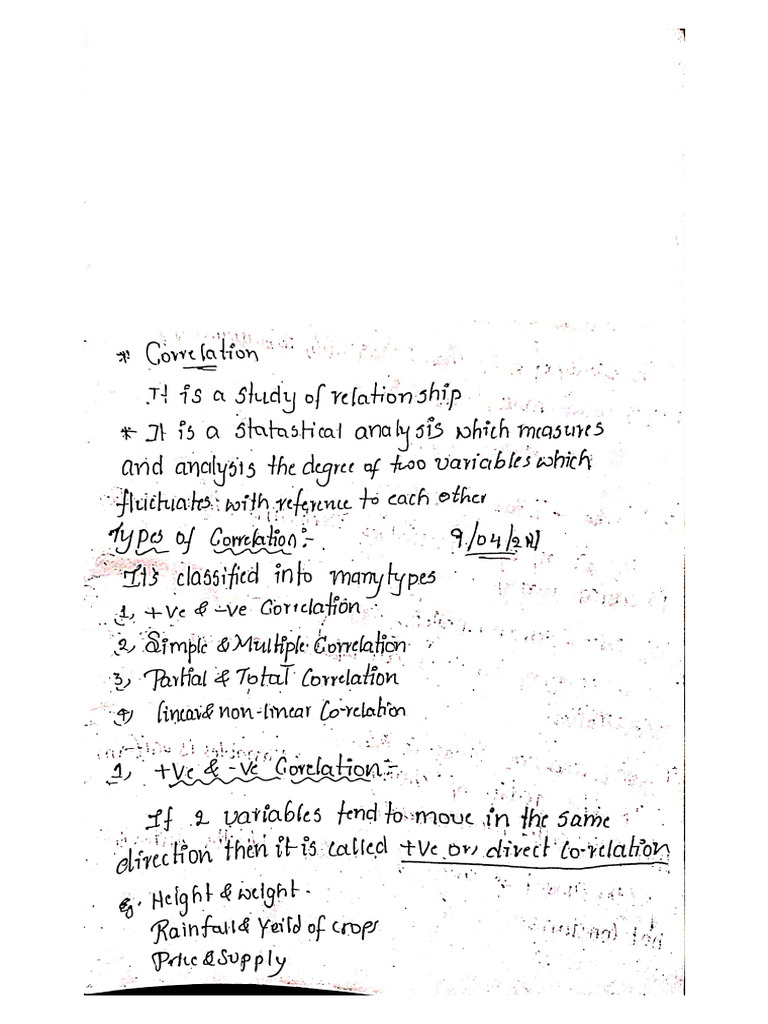 * Correlation
It is a study of relationship
* It is a statastical analysis which measures
and analysis the degree of two variables which
fluctuates with reference to each other
Types of Correlation:-
Its classified into many types
1, +ve & -ve Correlation
2, Simple & Multiple Correlation
3, Partial & Total Correlation
4, linear & non-linear Co-relation
1, +Ve & -ve Corelation:-
If 2 variables tend to move in the same
direction then it is called +ve or, direct Co-relation
eg. Height & weight.
Rainfall & Yeild of crops
Price & Supply